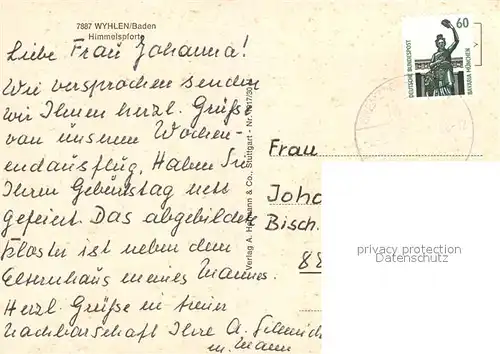 7887 WYHLEN/Baden
Himmelspforte
Liebe Frau Johanna!
Wie versprochen senden
wir Ihnen herzl. Grüße
von unserem Wochen-
endausflug. Haben Sie
Ihren Geburtstag nett
gefeiert. Das abgebildete
Kloster ist neben dem
Elternhaus meines Mannes.
Herzl. Grüße in treuer
Nachbarschaft Ihre A. Schmid
m. Mann
Verlag A. & Co., Stuttgart - Nr.
60
DEUTSCHE BUNDESPOST
BAVARIA MÜNCHEN
Frau
Joha
Bisch.
88
privacy protection
DELCAMPE